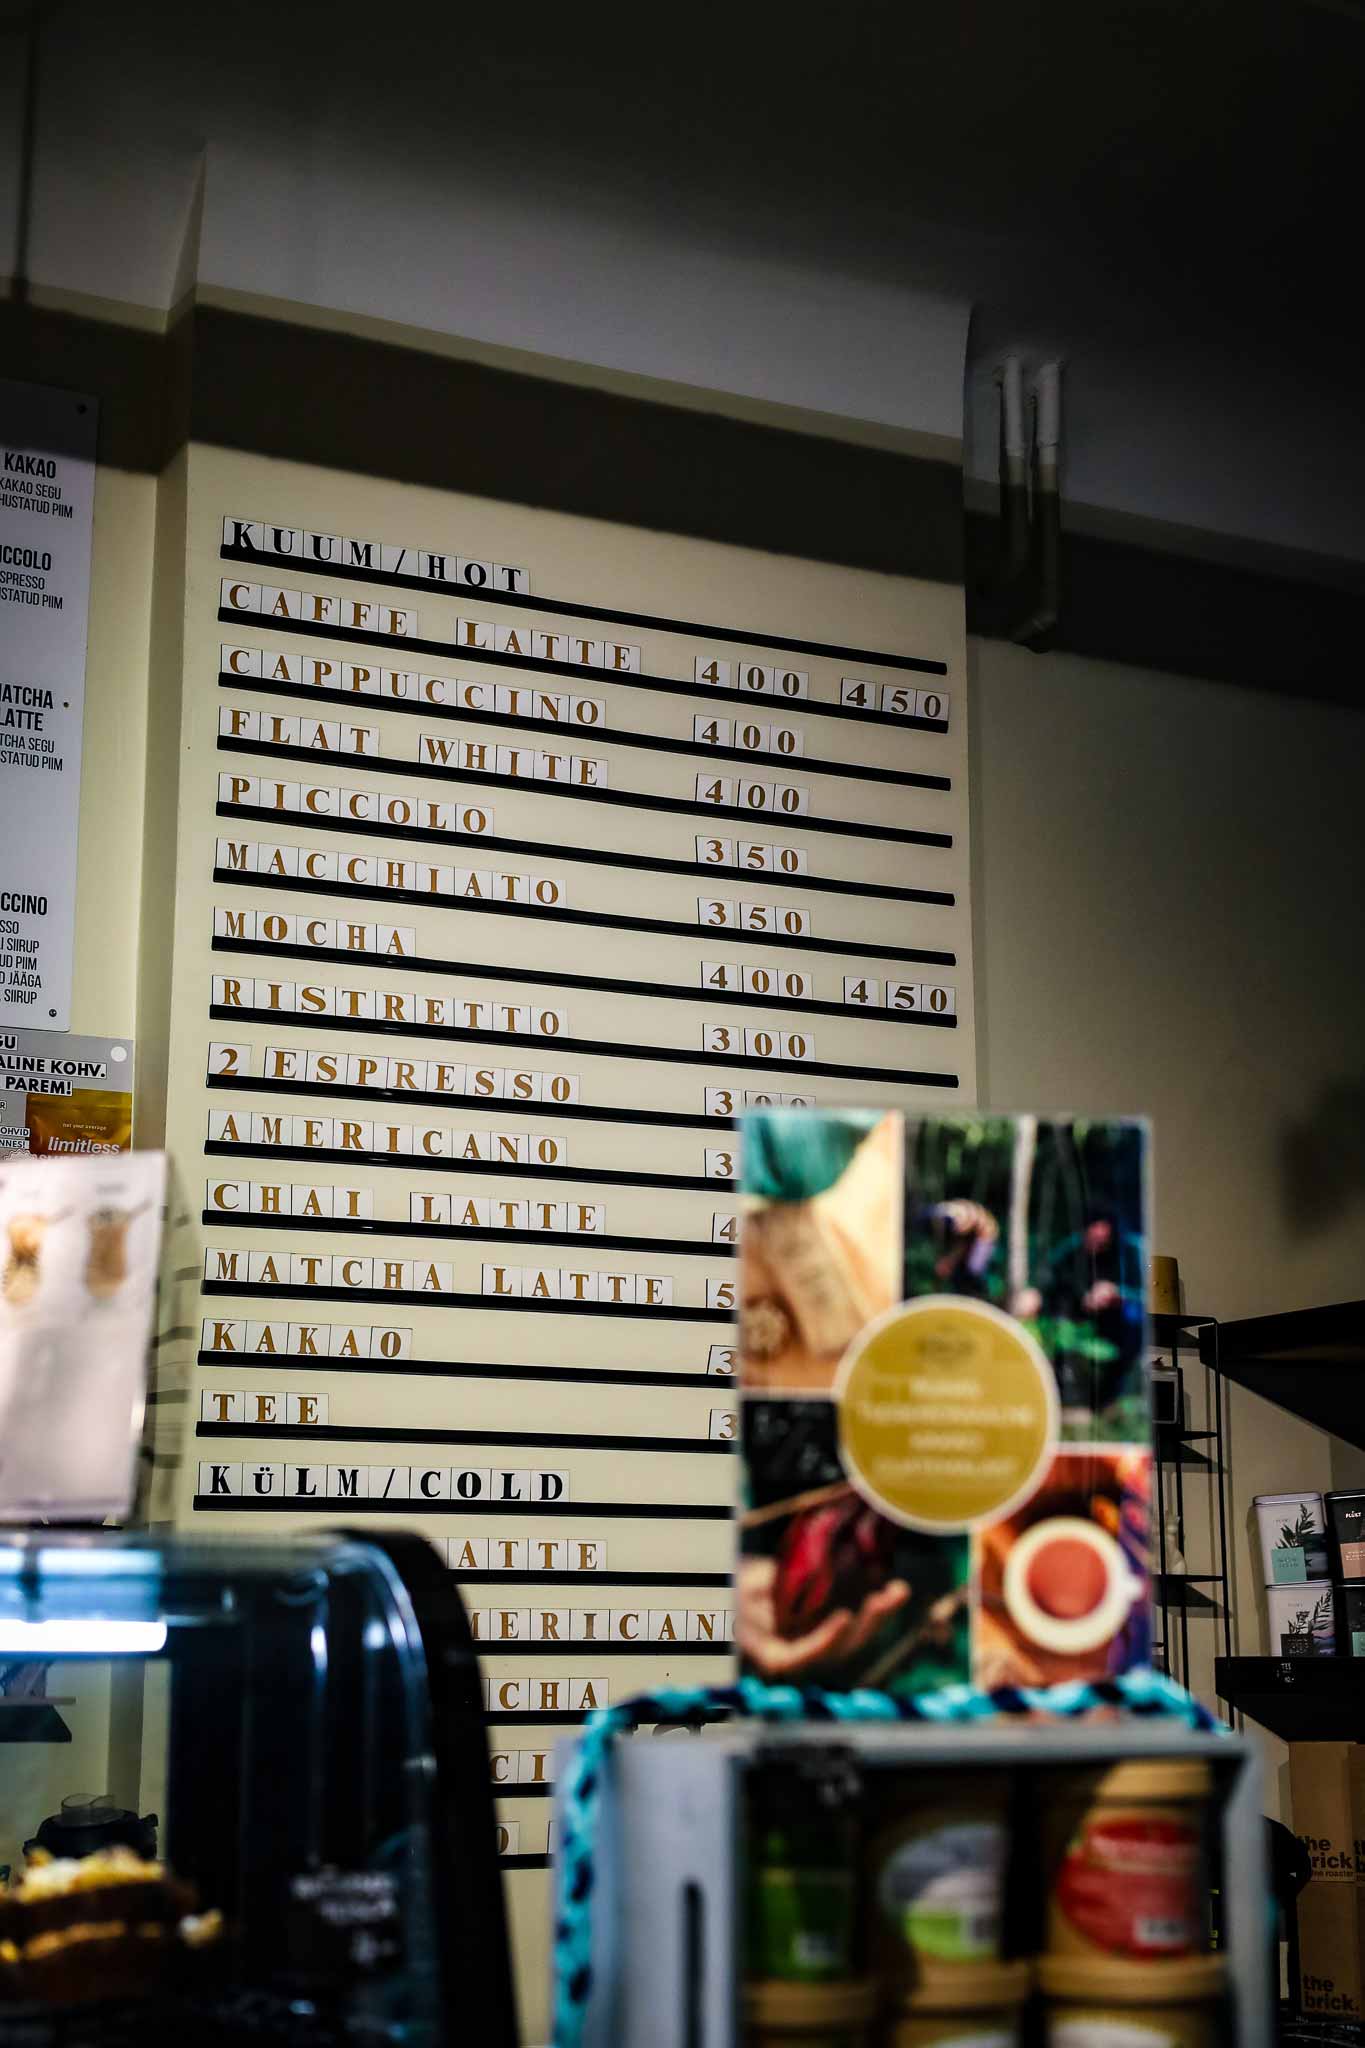 KAKAO
KAKAO SEGU
HUSTATUD PIIM
ICCOLO
SPRESSO
USTATUD PIIM
MATCHA
LATTE
TCHA SEGU
USTATUD PIIM
CCINO
SSO
I SIIRUP
UD PIIM
D JÄÄGA
SIIRUP
GU
ALINE KOHV.
PAREM!
OHVID
NNES!
not your average
limitless
KUUM/HOT
CAFFE LATTE 400 450
CAPPUCCINO 400
FLAT WHITE 400
PICCOLO 350
MACCHIATO 350
MOCHA 400 450
RISTRETTO 300
2 ESPRESSO 300
AMERICANO 3
CHAI LATTE 4
MATCHA LATTE 5
KAKAO 3
TEE 3
KÜLM/COLD
LATTE
MERICANO
CHA
CI
O
FLUKT
the
brick.
fine roaster
the
brick.